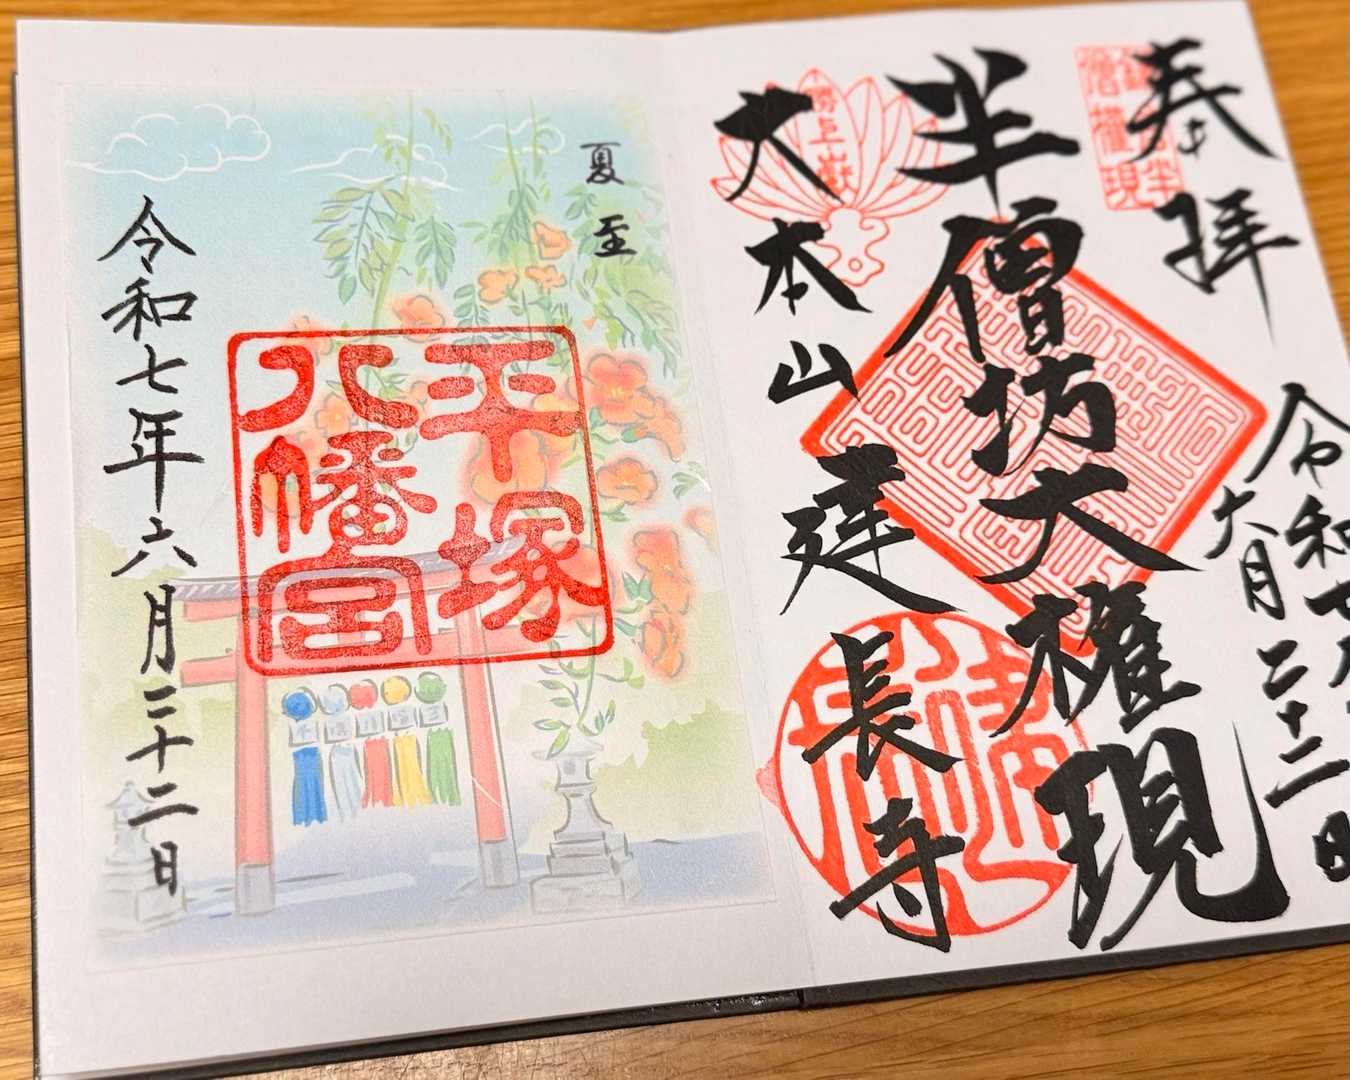 奉拝
半僧坊大権現
大本山建長寺
令和七年
六月二十二日
勝上嶽
夏至
平塚
八幡宮
令和七年六月二十二日